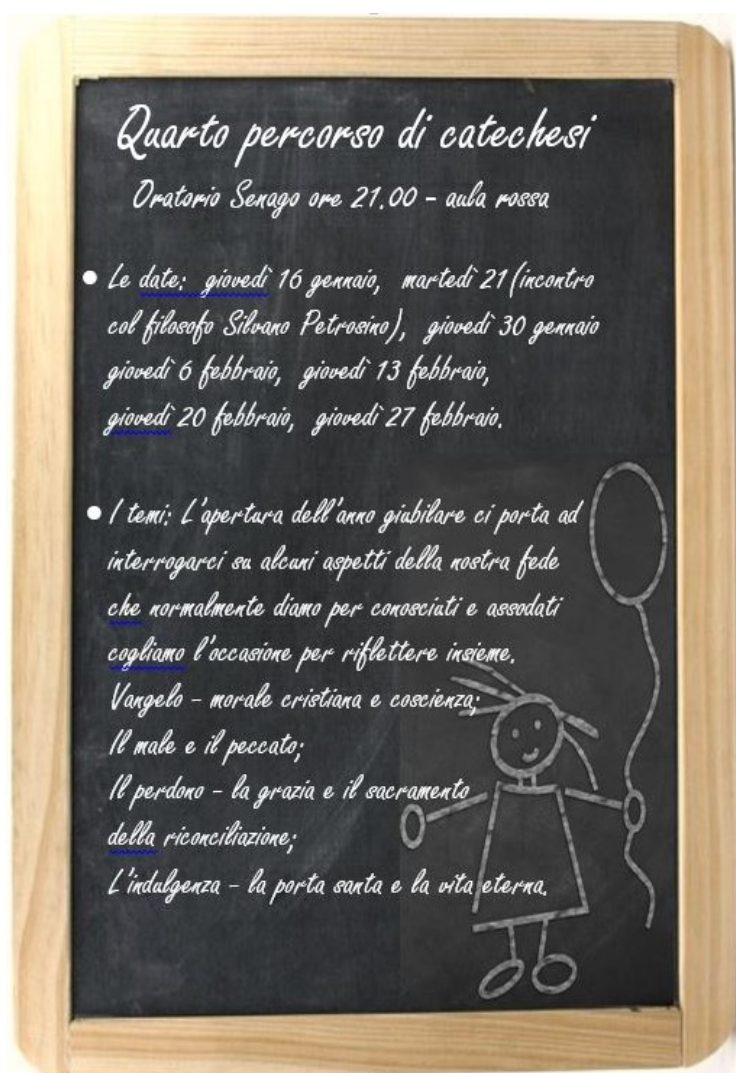 Quarto percorso di catechesi
Oratorio Senago ore 21.00 - aula rossa
• Le date: giovedì 16 gennaio, martedì 21 (incontro
col filosofo Silvano Petrosino), giovedì 30 gennaio
giovedì 6 febbraio, giovedì 13 febbraio,
giovedì 20 febbraio, giovedì 27 febbraio.
• I temi: L'apertura dell'anno giubilare ci porta ad
interrogarci su alcuni aspetti della nostra fede
che normalmente diamo per conosciuti e assodati
cogliamo l'occasione per riflettere insieme.
Vangelo - morale cristiana e coscienza;
Il male e il peccato;
Il perdono - la grazia e il sacramento
della riconciliazione;
L'indulgenza - la porta santa e la vita eterna.